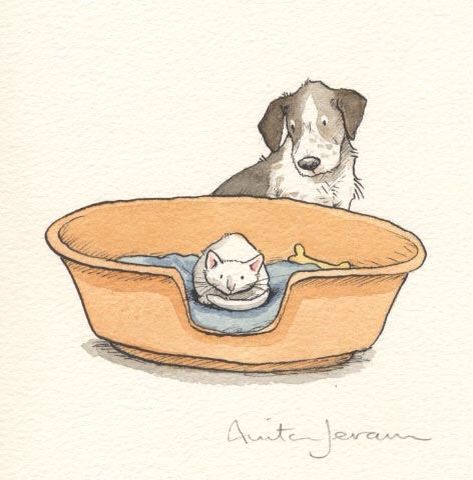 Anita Jeram